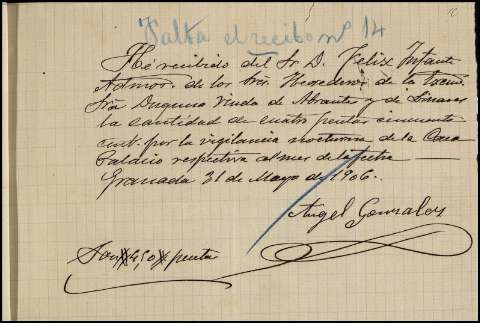 Falta el recibo nº 14
He recibido del Sr. D. Felix Infante
Admor. de los Sres Herederos de la Excma
Sra Duquesa Viuda de Abrantes y de Linares
la cantidad de cuatro pesetas cincuenta
cent. por la vigilancia nocturna de la Casa
Palacio respectiva al mes de la fecha
Granada 31 de Mayo de 1906.
Angel Gonzalez
Son 4,50 pesetas